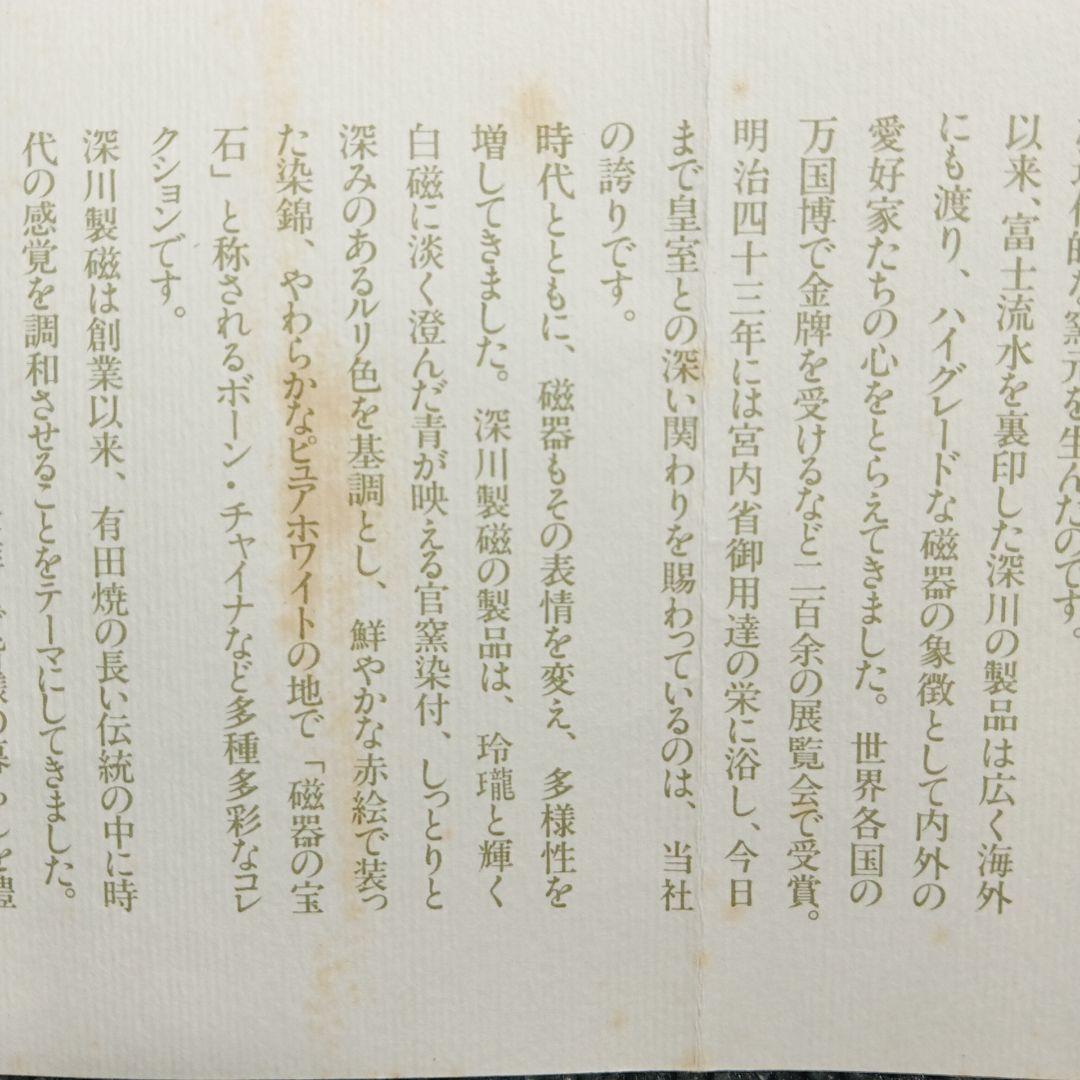 な窯元を生んだのです。
以来、富士流水を裏印した深川の製品は広く海外
にも渡り、ハイグレードな磁器の象徴として内外の
愛好家たちの心をとらえてきました。世界各国の
万国博で金牌を受けるなど二百余の展覧会で受賞。
明治四十三年には宮内省御用達の栄に浴し、今日
まで皇室との深い関わりを賜わっているのは、当社
の誇りです。
時代とともに、磁器もその表情を変え、多様性を
増してきました。深川製磁の製品は、玲瓏と輝く
白磁に淡く澄んだ青が映える官窯染付、しっとりと
深みのあるルリ色を基調とし、鮮やかな赤絵で装っ
た染錦、やわらかなピュアホワイトの地で「磁器の宝
石」と称されるボーン・チャイナなど多種多彩なコレ
クションです。
深川製磁は創業以来、有田焼の長い伝統の中に時
代の感覚を調和させることをテーマにしてきました。